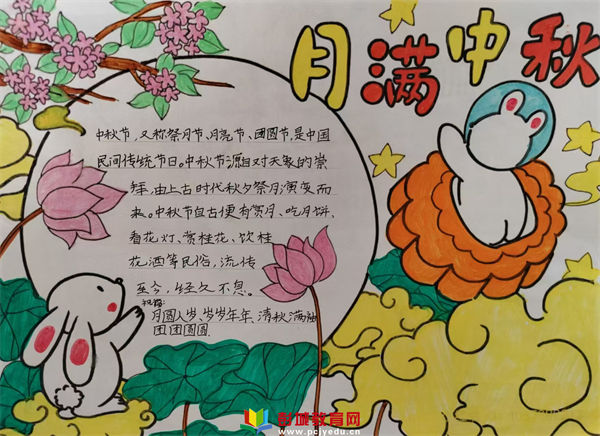 月满中秋
中秋节，又称祭月节、月亮节、团圆节，是中国
民间传统节日。中秋节源自对天象的崇
拜，由上古时代秋夕祭月演变而
来。中秋节自古便有赏月、吃月饼、
看花灯、赏桂花、饮桂
花酒等民俗，流传
至今，经久不息。
祝福：
月圆人岁、岁岁年年、清秋满
团团圆圆
彭城教育网
www.pcjyedu.cn